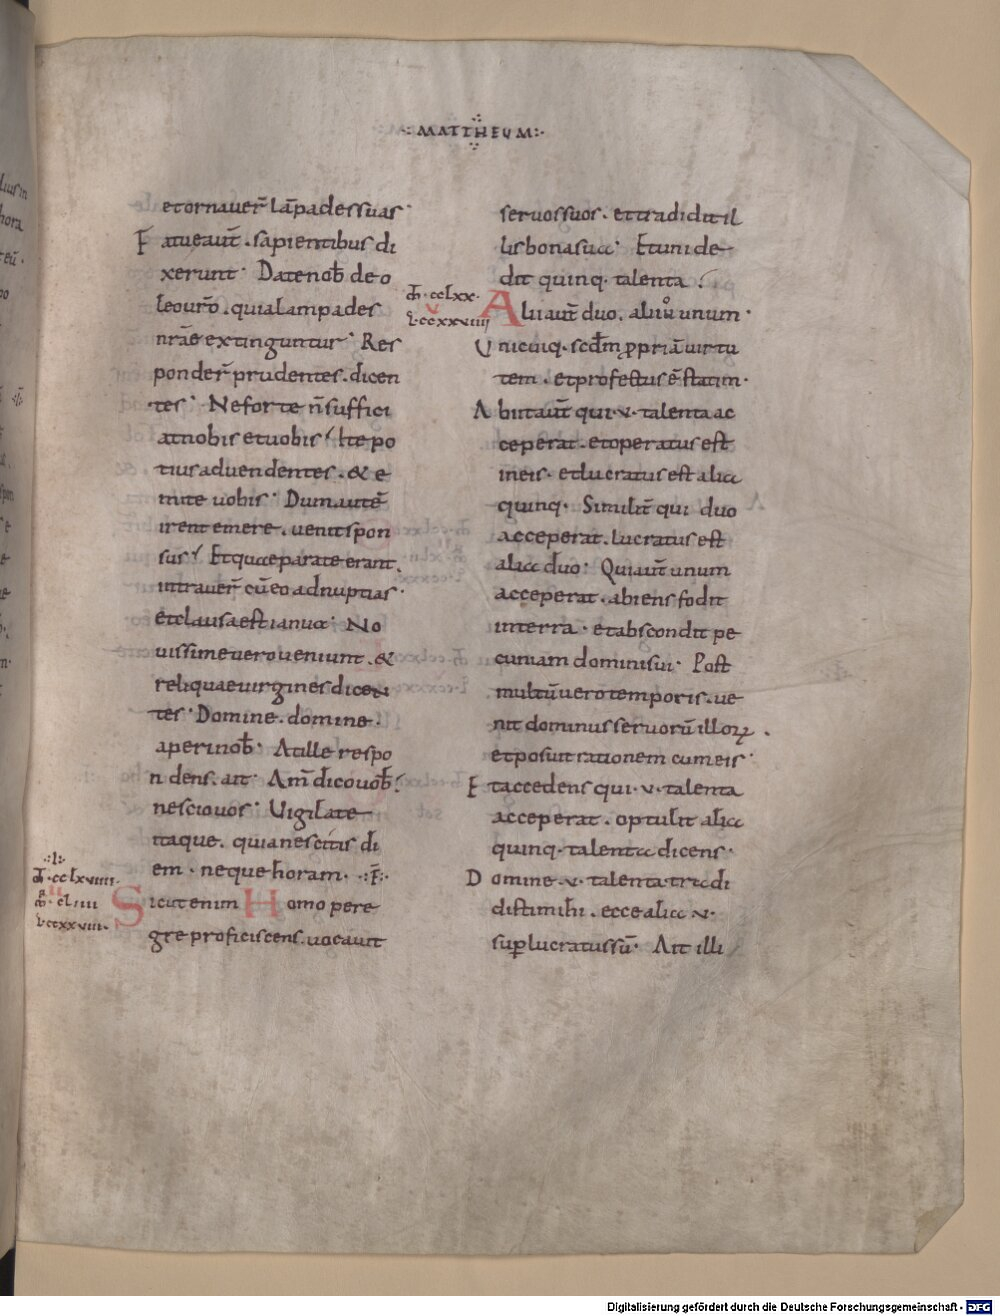 ·:MATTHEUM:·
et ornauer̄ lāpades suas
Fatue aut̄. sapientibus di
xerunt· Date nob̄ de o
leo ur̄o. quia lampades
nr̄ae extinguntur· Res
ponder̄ prudentes. dicen
tes· Ne forte n̄ suffici
at nobis et uobis. Ite po
tius ad uendentes. & e
mite uobis· Dum autē
irent emere. uenit spon
sus. Et quae paratae erant.
intrauer̄ cū eo ad nuptias·
et clausa est ianua· No
uissime uero ueniunt. &
reliquae uirgines dicen
tes· Domine. domine.
aperi nob̄· At ille respo
ndens. ait· Am̄ dico uob̄.
nescio uos· Uigilate
itaque. quia nescitis di
em. neque horam. .:F̄:.
·:L:·
cclxviiii.
cliiii
ccxxviii.
Sicut enim Homo pere
gre proficiscens. uocauit
seruos suos. et tradidit il
lis bona sua· Et uni de
dit quinq. talenta
cclxx.
ccxxviiii
Alii aut̄ duo. alii ů unum·
Unicuiq. scd̄m ꝓpriā uirtu
tem. et profectus ē statim·
Abiit aut̄ qui ·v· talenta ac
ceperat. et operatus est
in eis. et lucratus est alia
quinq· Similit̄ qui duo
acceperat. lucratus est
alia duo· Qui aut̄ unum
acceperat. abiens fodit
in terra. et abscondit pe
cuniam domini sui· Post
multū uero temporis. ue
nit dominus seruorū illoꝝ.
et posuit rationem cum eis·
Et accedens qui ·v· talenta
acceperat. optulit alia
quinq· talenta dicens·
Domine ·v· talenta tradi
disti mihi. ecce alia v·
suꝑ lucratus sū· Ait illi
Digitalisierung gefördert durch die Deutsche Forschungsgemeinschaft - DFG